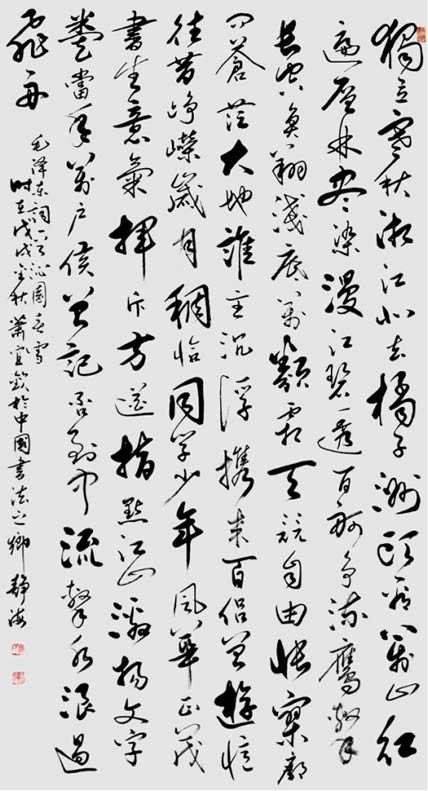 獨立寒秋湘江北去橘子洲頭看萬山紅
遍層林盡染漫江碧透百舸爭流鷹擊
長空魚翔淺底萬類霜天競自由悵寥廓
問蒼茫大地誰主沉浮携來百侶曾遊憶
往昔崢嶸歲月稠恰同學少年風華正茂
書生意氣揮斥方遒指點江山激揚文字
糞土當年萬戶侯曾記否到中流擊水浪遏
飛舟
毛泽东詞一首沁園春雪
時在戊戌金秋蕭宜欽於中國書法之鄉靜海